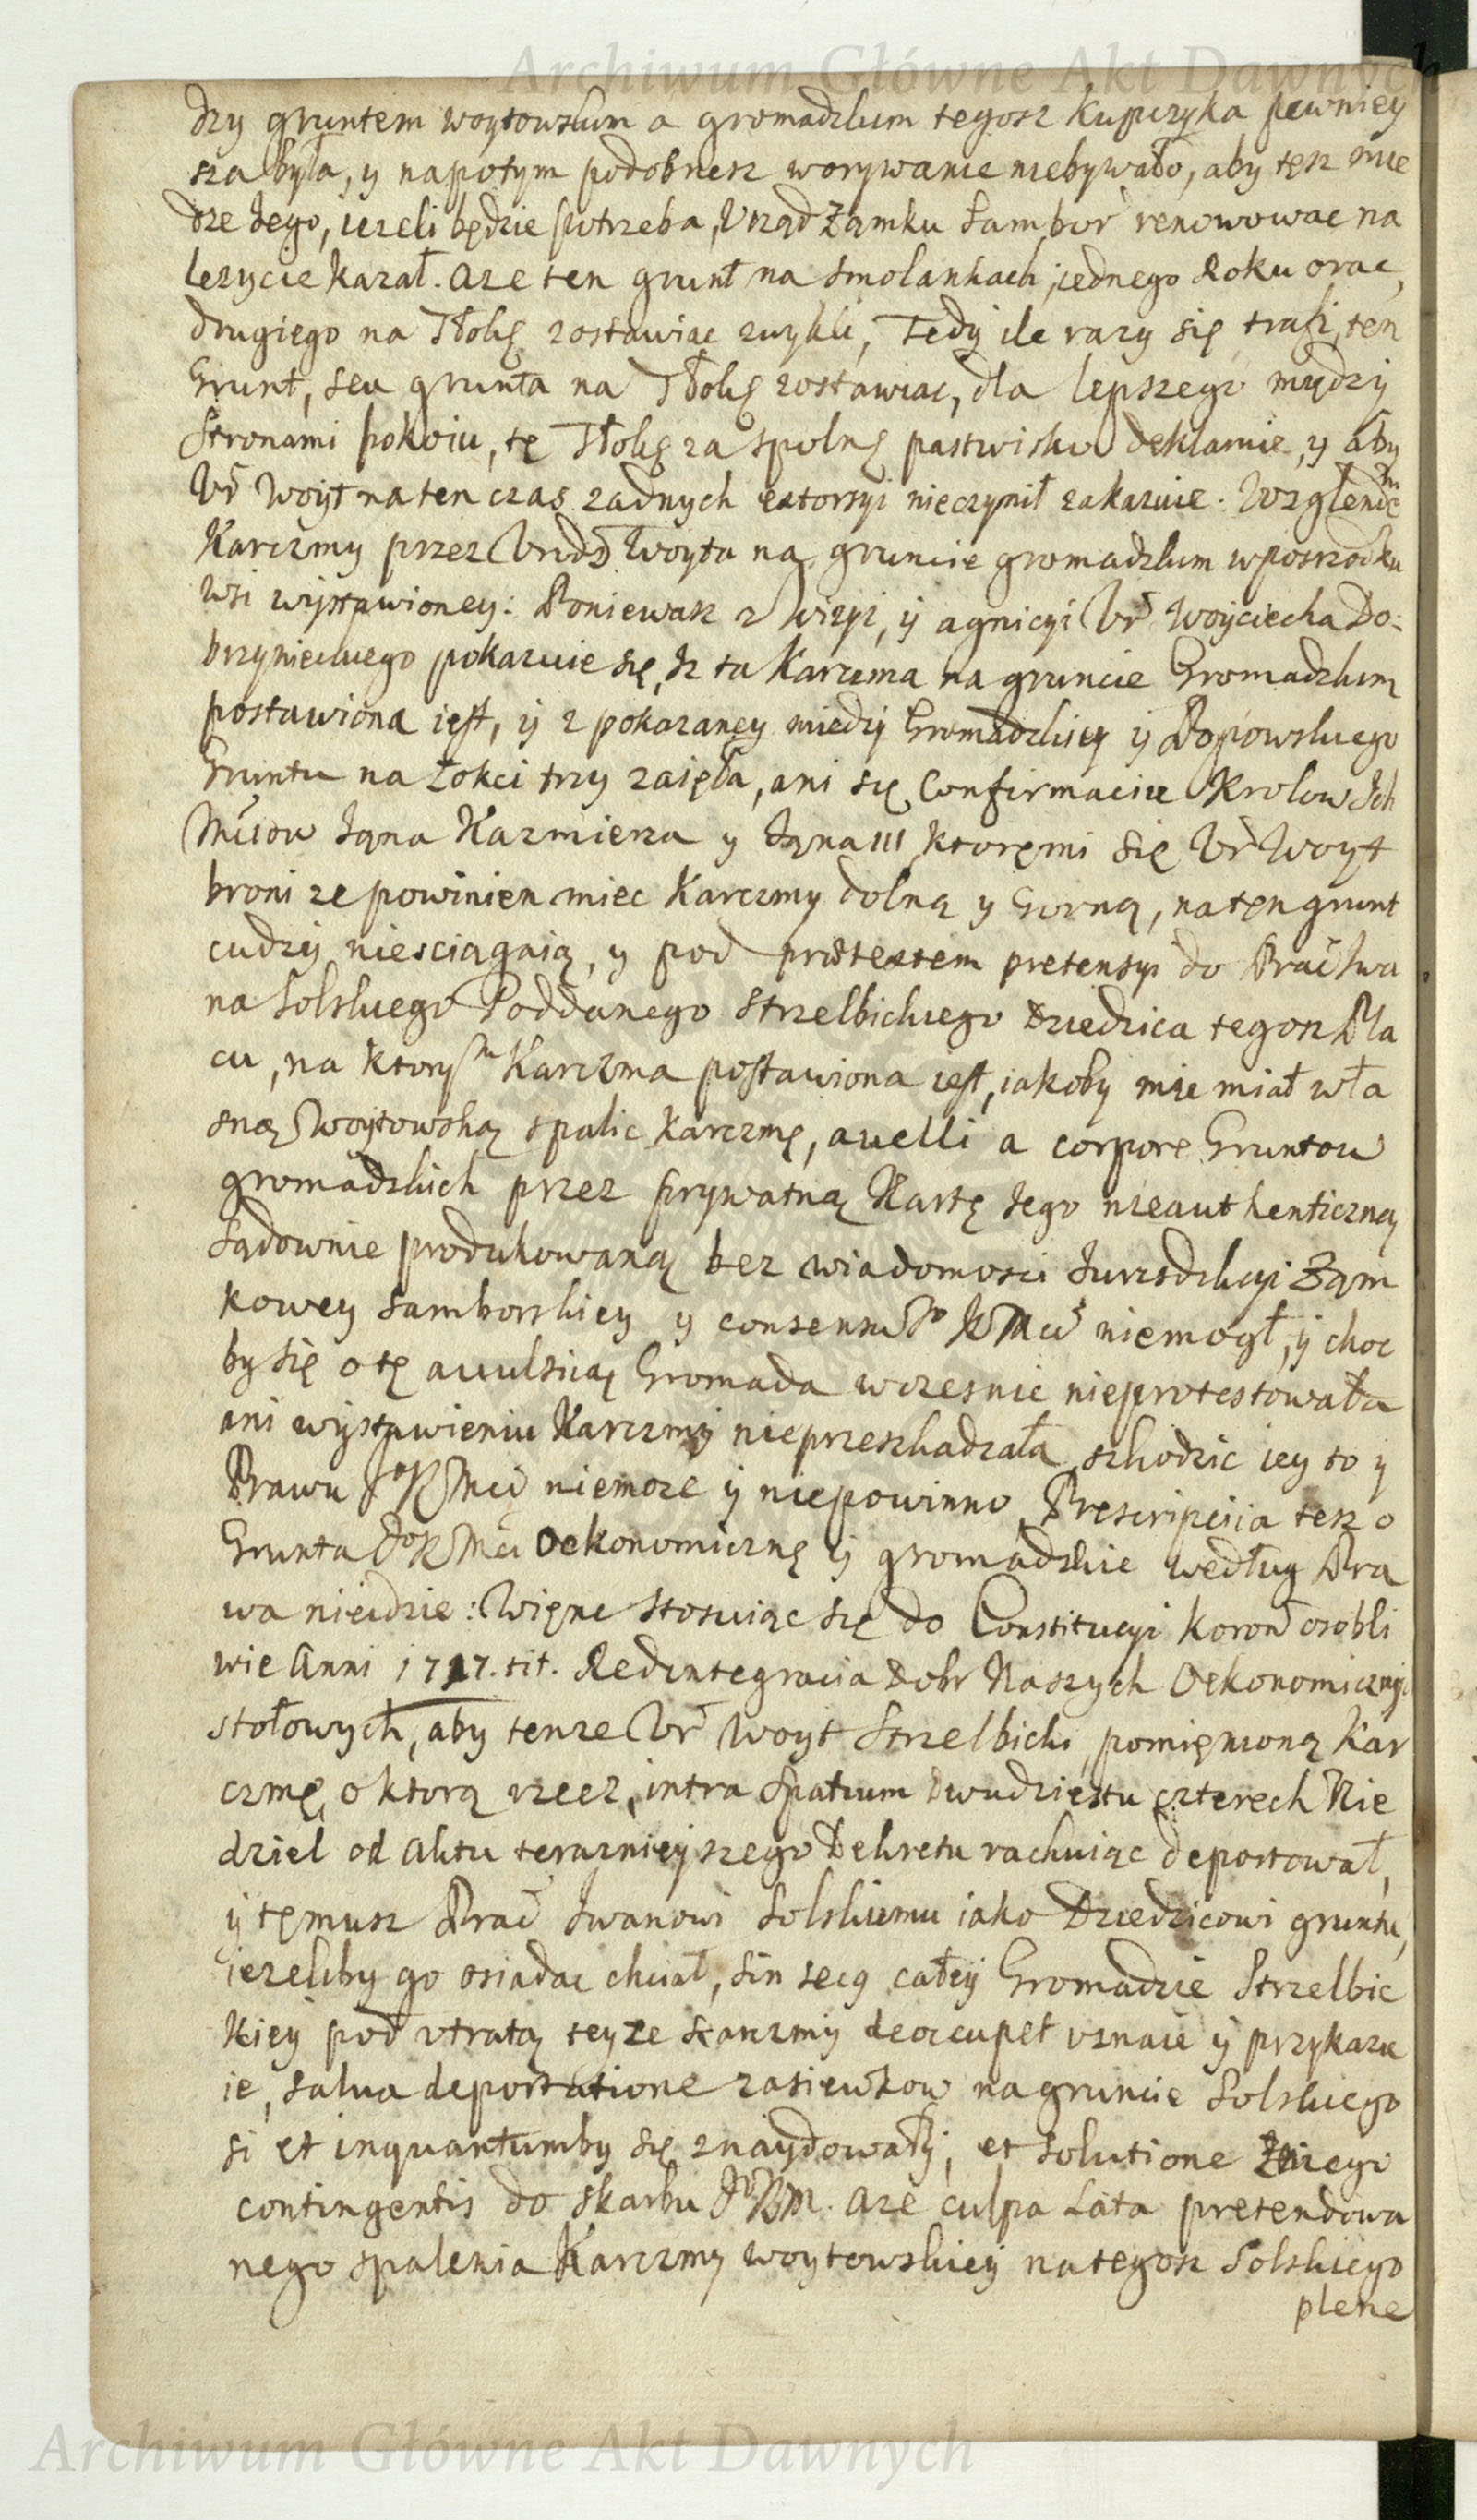 Archiwum Główne Akt Dawnych
dzy gruntem woytowskim a gromadzkim tegosz Kupczyka pewniey
sza była, y napotym podobnesz worywanie niebywało, aby tesz mie
dze Jego, iezeli będzie potrzeba, Urząd Zamku Sambor renowowac na
lezycie kazał. aze ten grunt na Smolankach, iednego Roku orac,
drugiego na Tłokę zostawiac zwykli, Tedy ile razy się trafi, ten
Grunt, seu grunta na Tłokę zostawiac, dla lepszego między
Stronami pokoiu, tę Tłokę za spolne pastwisko deklaruie, y aby
Ur Woyt na ten czas zadnych extorsyi nieczynił zakazuie. Wzglendem
Karczmy przez Urodd Woyta na gruncie gromadzkim wposrzodku
wsi wystawioney: Poniewasz z wizyi, y agnicyi Ur Woyciecha Do-
brzynieckiego pokazuie się, Iz ta Karczma na gruncie Gromadzkim
postawiona iest, y z pokazaney miedzy Gromadzkiey y Popowskiego
Gruntu na Łokci trzy zaięła, ani się Confirmacie Krolow Ich
Mciow Jana Kazmierza y Jana III, ktoremi się Ur Woyt
broni ze powinien miec Karczmy dolną y Gorną, na ten grunt
cudzy niesciągaią, y pod prætextem pretensyi do Prač Iwa
na Solskiego Poddanego Strzelbickiego Dziedzica tegosz Pla
cu, na ktorym Karczma postawiona iest, iakoby mie miał wła
sną Woytowską spalic Karczmę, avelli a corpore Gruntow
gromadzkich przez prywatną Kartę Jego nieauthentyczną
Sądownie produkowaną bez wiadomosci Jurisdykcyi Zam
kowey Samborskiey y consensu Jo K Mci niemogł, y choc
by się o tę avulsią Gromada wczesnie nieprotestowała
ani wystawieniu Karczmy nieprzeszkadzała, szkodzic iey to y
Prawu Jo K Mci niemoze y niepowinno, Prescripcyia tesz o
Grunta Jo K Mci Oekonomiczne y gromadzkie według Pra
wa nieidzie: Więnc stosuiąc się do Constitucyi Koron osobli
wie Anni 1717. tit. Redintegracia Dobr Naszych Oekonomicznych
stołowych, aby tenze Ur Woyt Strzelbicki pomięnioną Kar
czmę, o ktorą rzecz, intra spatium dwudziestu czterech Nie
dziel od Aktu terazniejszego Dekretu rachuiąc deportował,
y temusz Prač Iwanowi Solskiemu iako Dziedzicowi gruntu,
iezeliby go osiadac chciał, sin secs całey Gromadzie Strzelbic
kiey pod utratą teyze Karczmy deoccupet uznaie y przykazu
ie, salva deportatione zasiewkow na gruncie Solskiego
si et inquantumby się znaydowały, et solutione
contingentis do skarbu Jo K M. aze culpa Lata pretendowa
nego spalenia Karczmy woytowskiey na tegosz Solskiego
plene
Archiwum Główne Akt Dawnych